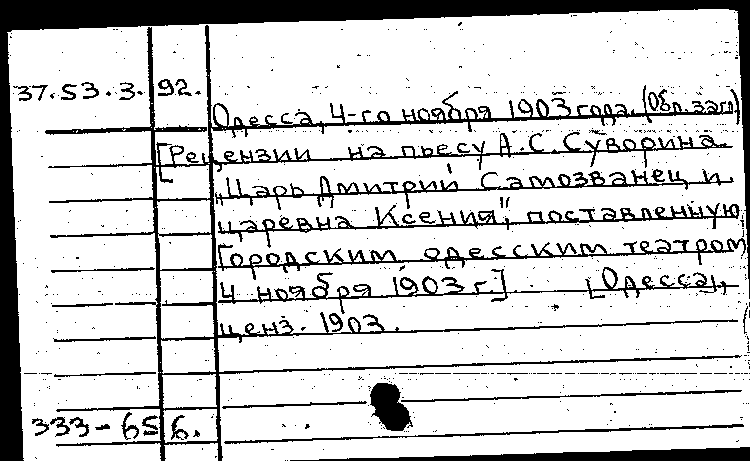 37.53.3.92.
Одесса, 4-го ноября 1903 года. (Обл. загл)
[Рецензии на пьесу А.С. Суворина
„Царь Дмитрий Самозванец и
царевна Ксения", поставленную
Городским одесским театром
4 ноября 1903 г.] [Одесса],
ценз. 1903.
333-656.